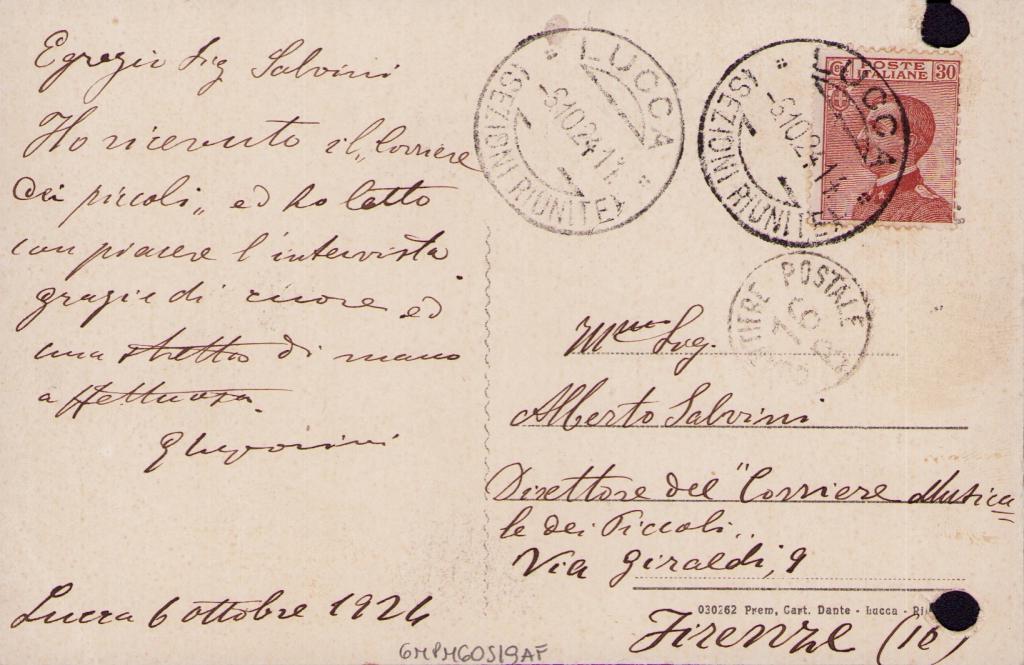 Egregio Sig Salvini
Ho ricevuto il „Corriere
dei piccoli„ ed ho letto
con piacere l'intervista
grazie di cuore ed
una stretta di mano
affettuosa.
Lucca 6 ottobre 1924
LUCCA
-6.10.24.1
(SEZIONI RIUNITE)
LUCCA
-6.10.24.14
(SEZIONI RIUNITE)
POSTE
ITALIANE 30
POSTALE
Sig.
Alberto Salvini
Direttore del "Corriere Musica
le dei Piccoli„
Via Giraldi, 9
Firenze (10)
030262 Prem. Cart. Dante - Lucca -
6MPM60S19AF